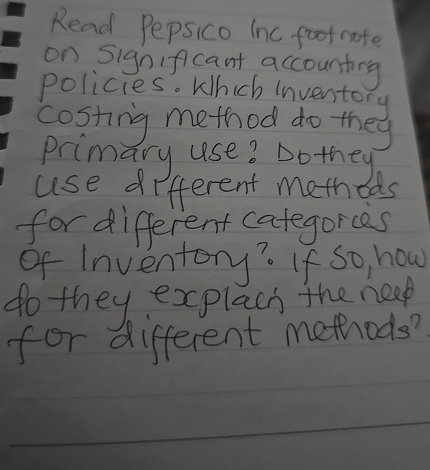 Read Pepsico Inc footnote
on Significant accounting
policies. Which Inventory
Costing method do they
Primary use? Do they
use different methods
for different categories
Of Inventory? If so, how
do they explain the need
for different methods?